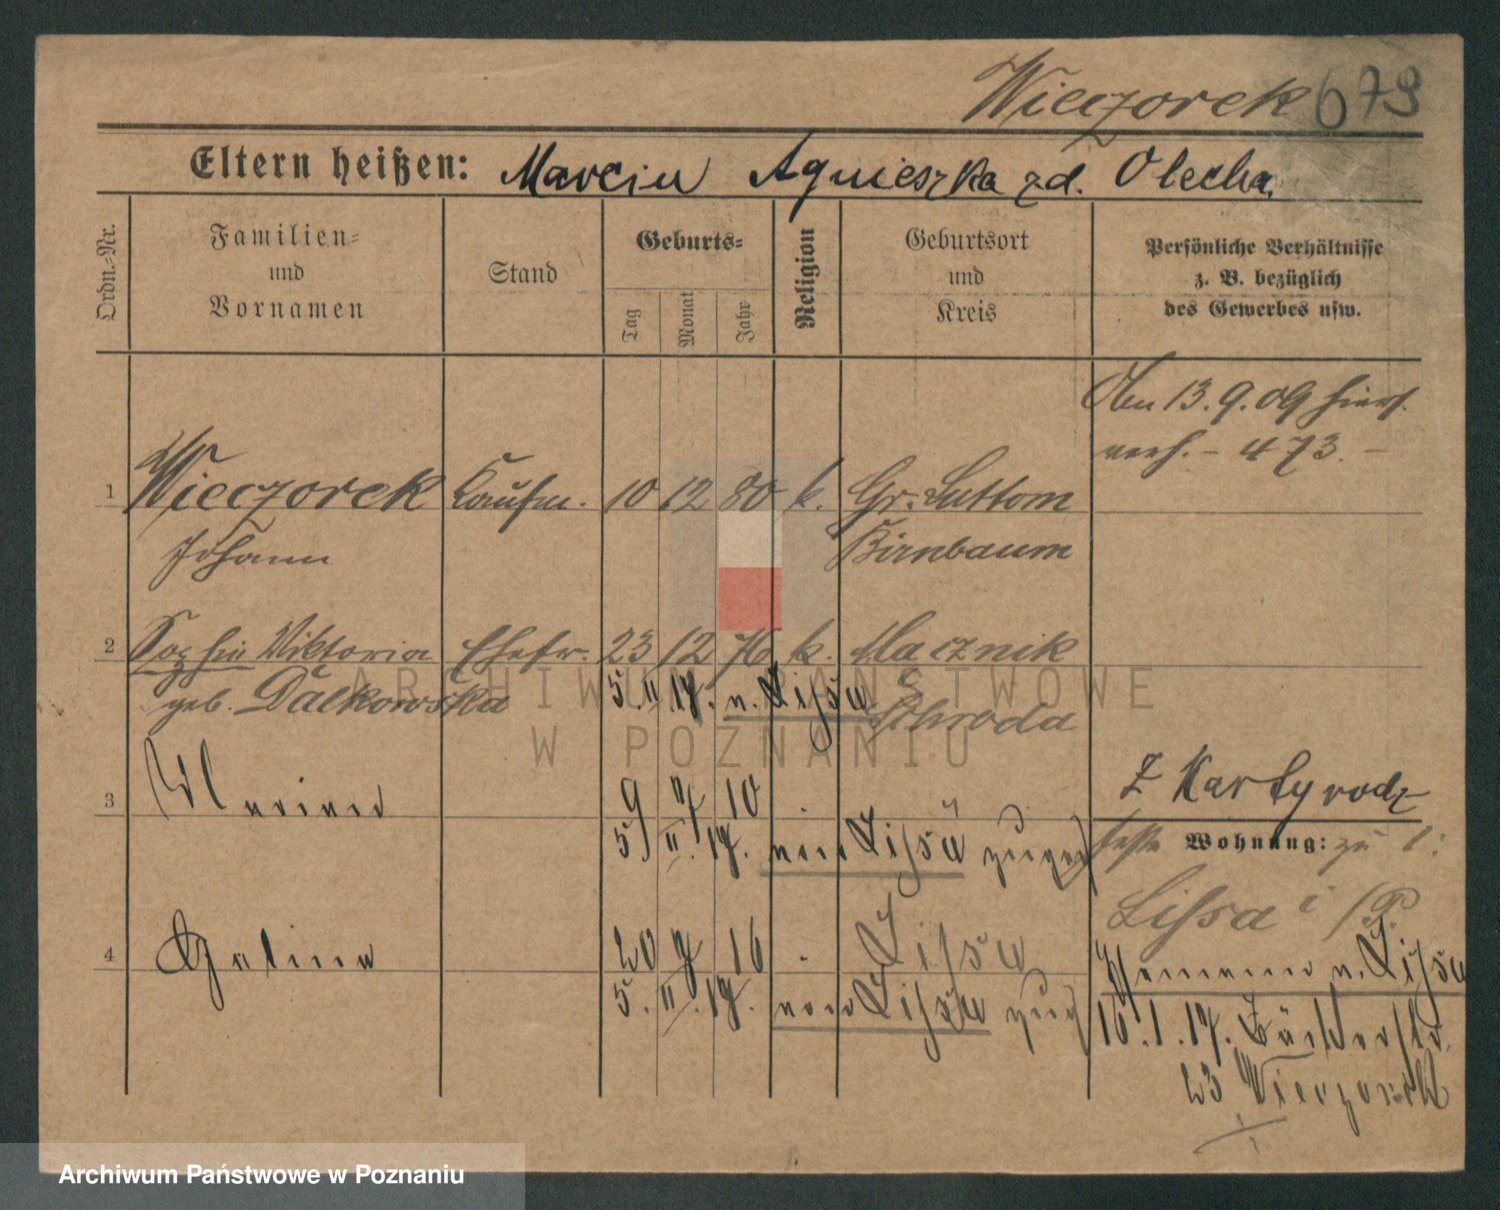 Wieczorek 679
Eltern heißen: Marcin Agnieszka zd. Olecha.
Ordn.-Nr.
Familien-
und
Vornamen
Stand
Geburts-
Tag
Monat
Jahr
Religion
Geburtsort
und
Kreis
Persönliche Verhältnisse
z. B. bezüglich
des Gewerbes usw.
Am 13.9.09 hiers.
verh. - 473. -
1 Wieczorek Kaufm. 10 12 80 k. Gr. Luttom
Johann Birnbaum
2 Sophie Viktoria Ehefr. 23 12 76 k. Macznik
geb. Dalkowska Schroda
5. II 17. v. Lissa
3 Marian 9 7 10
Z Karty rodz
5 II. 17. von Lissa
Wohnung: zu 1:
Lissa i/P.
4 Halina 20 7 16 Lissa
5. II. 17. von Lissa zug
v. Lissa
16.1.17.
23 Wieczorek
ARCHIWUM PAŃSTWOWE
W POZNANIU
Archiwum Państwowe w Poznaniu